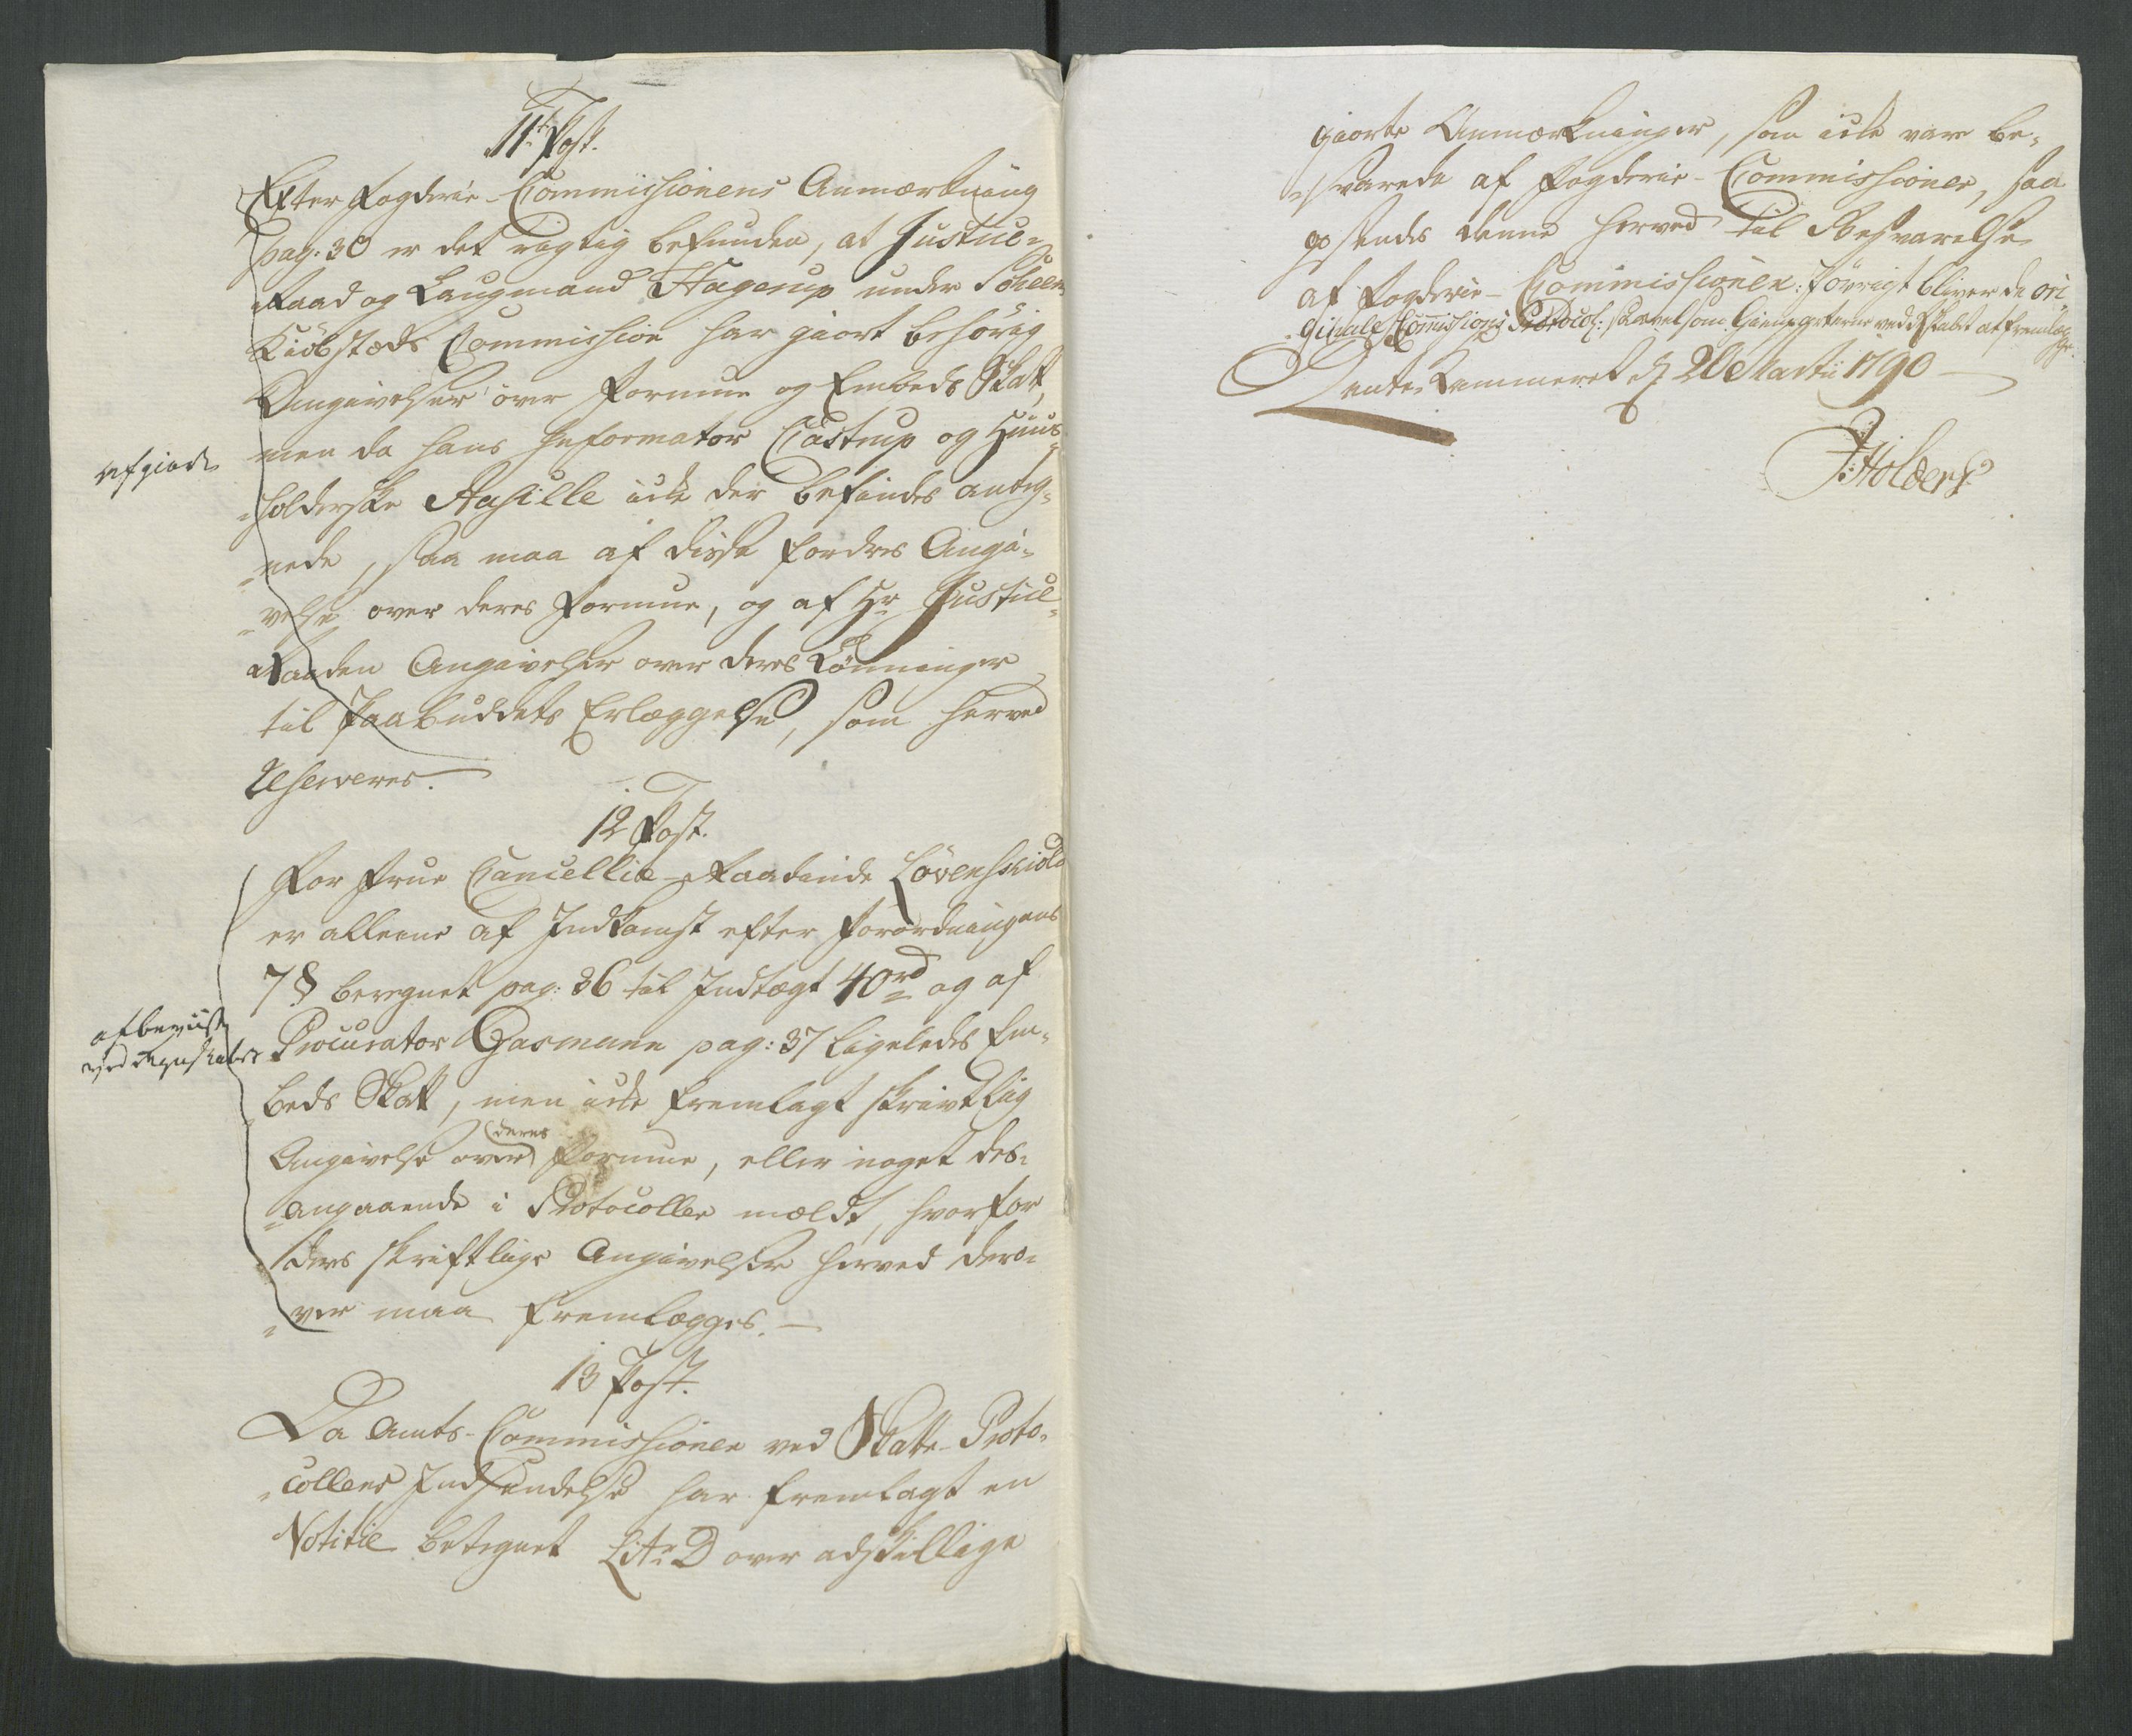 11te Post.
Efter Fogderie-Commissionens Anmærkning
pag: 30 er det rigtig befunden, at Justice-
Raad og Laugmand Hagerup under Scheens
Kiöbstæds Commission har giort behörig
Angivelser över Formue og Embeds Skatt,
men da hans Informator Castrup og Huus-
holderske Aasille icke der befindes anteg-
nede, saa maa af disse fordres Angi-
velse over deres Formue, og af Hr Justice-
Raaden Angivelser over deres Lönninger
til Paabuddets Erlæggelse, som herved
reserveres.
12 Post.
For Frue Cancellie-Raadinde Lövenskiold
er alleene af Indkomst efter Forordningens
7 § beregnet pag: 36 til Indtægt 40 rd og af
Procurator Gasmann pag: 37 ligeledes Em-
beds Skatt, men icke fremlagt skrivtlig
Angivelse over deres Formue, eller noget des-
angaaende i Protocollen meldt, hvorfor
ders skriftlige Angivelser herved dero-
ver maa fremlægges.
13 Post.
Da Amts-Commissionen ved Skatte-Proto-
collens Indsendelse har fremlagt en
Notitie betegnet Litr D over adskillige
afgiort
afbeviist
ved Regnskabet
giorte Anmærkninger, som icke vare be-
svarede af Fogderie-Commissionen, saa
sendes denne herved til Besvarelse
af Fogderie-Commissionen: Jövrigt bliver de ori-
ginale Commissions Protocol: saavelsom Gienparterne ved Skatet at fremlægge.
Rente Kammeret d 20 Martii 1790
J: Holders